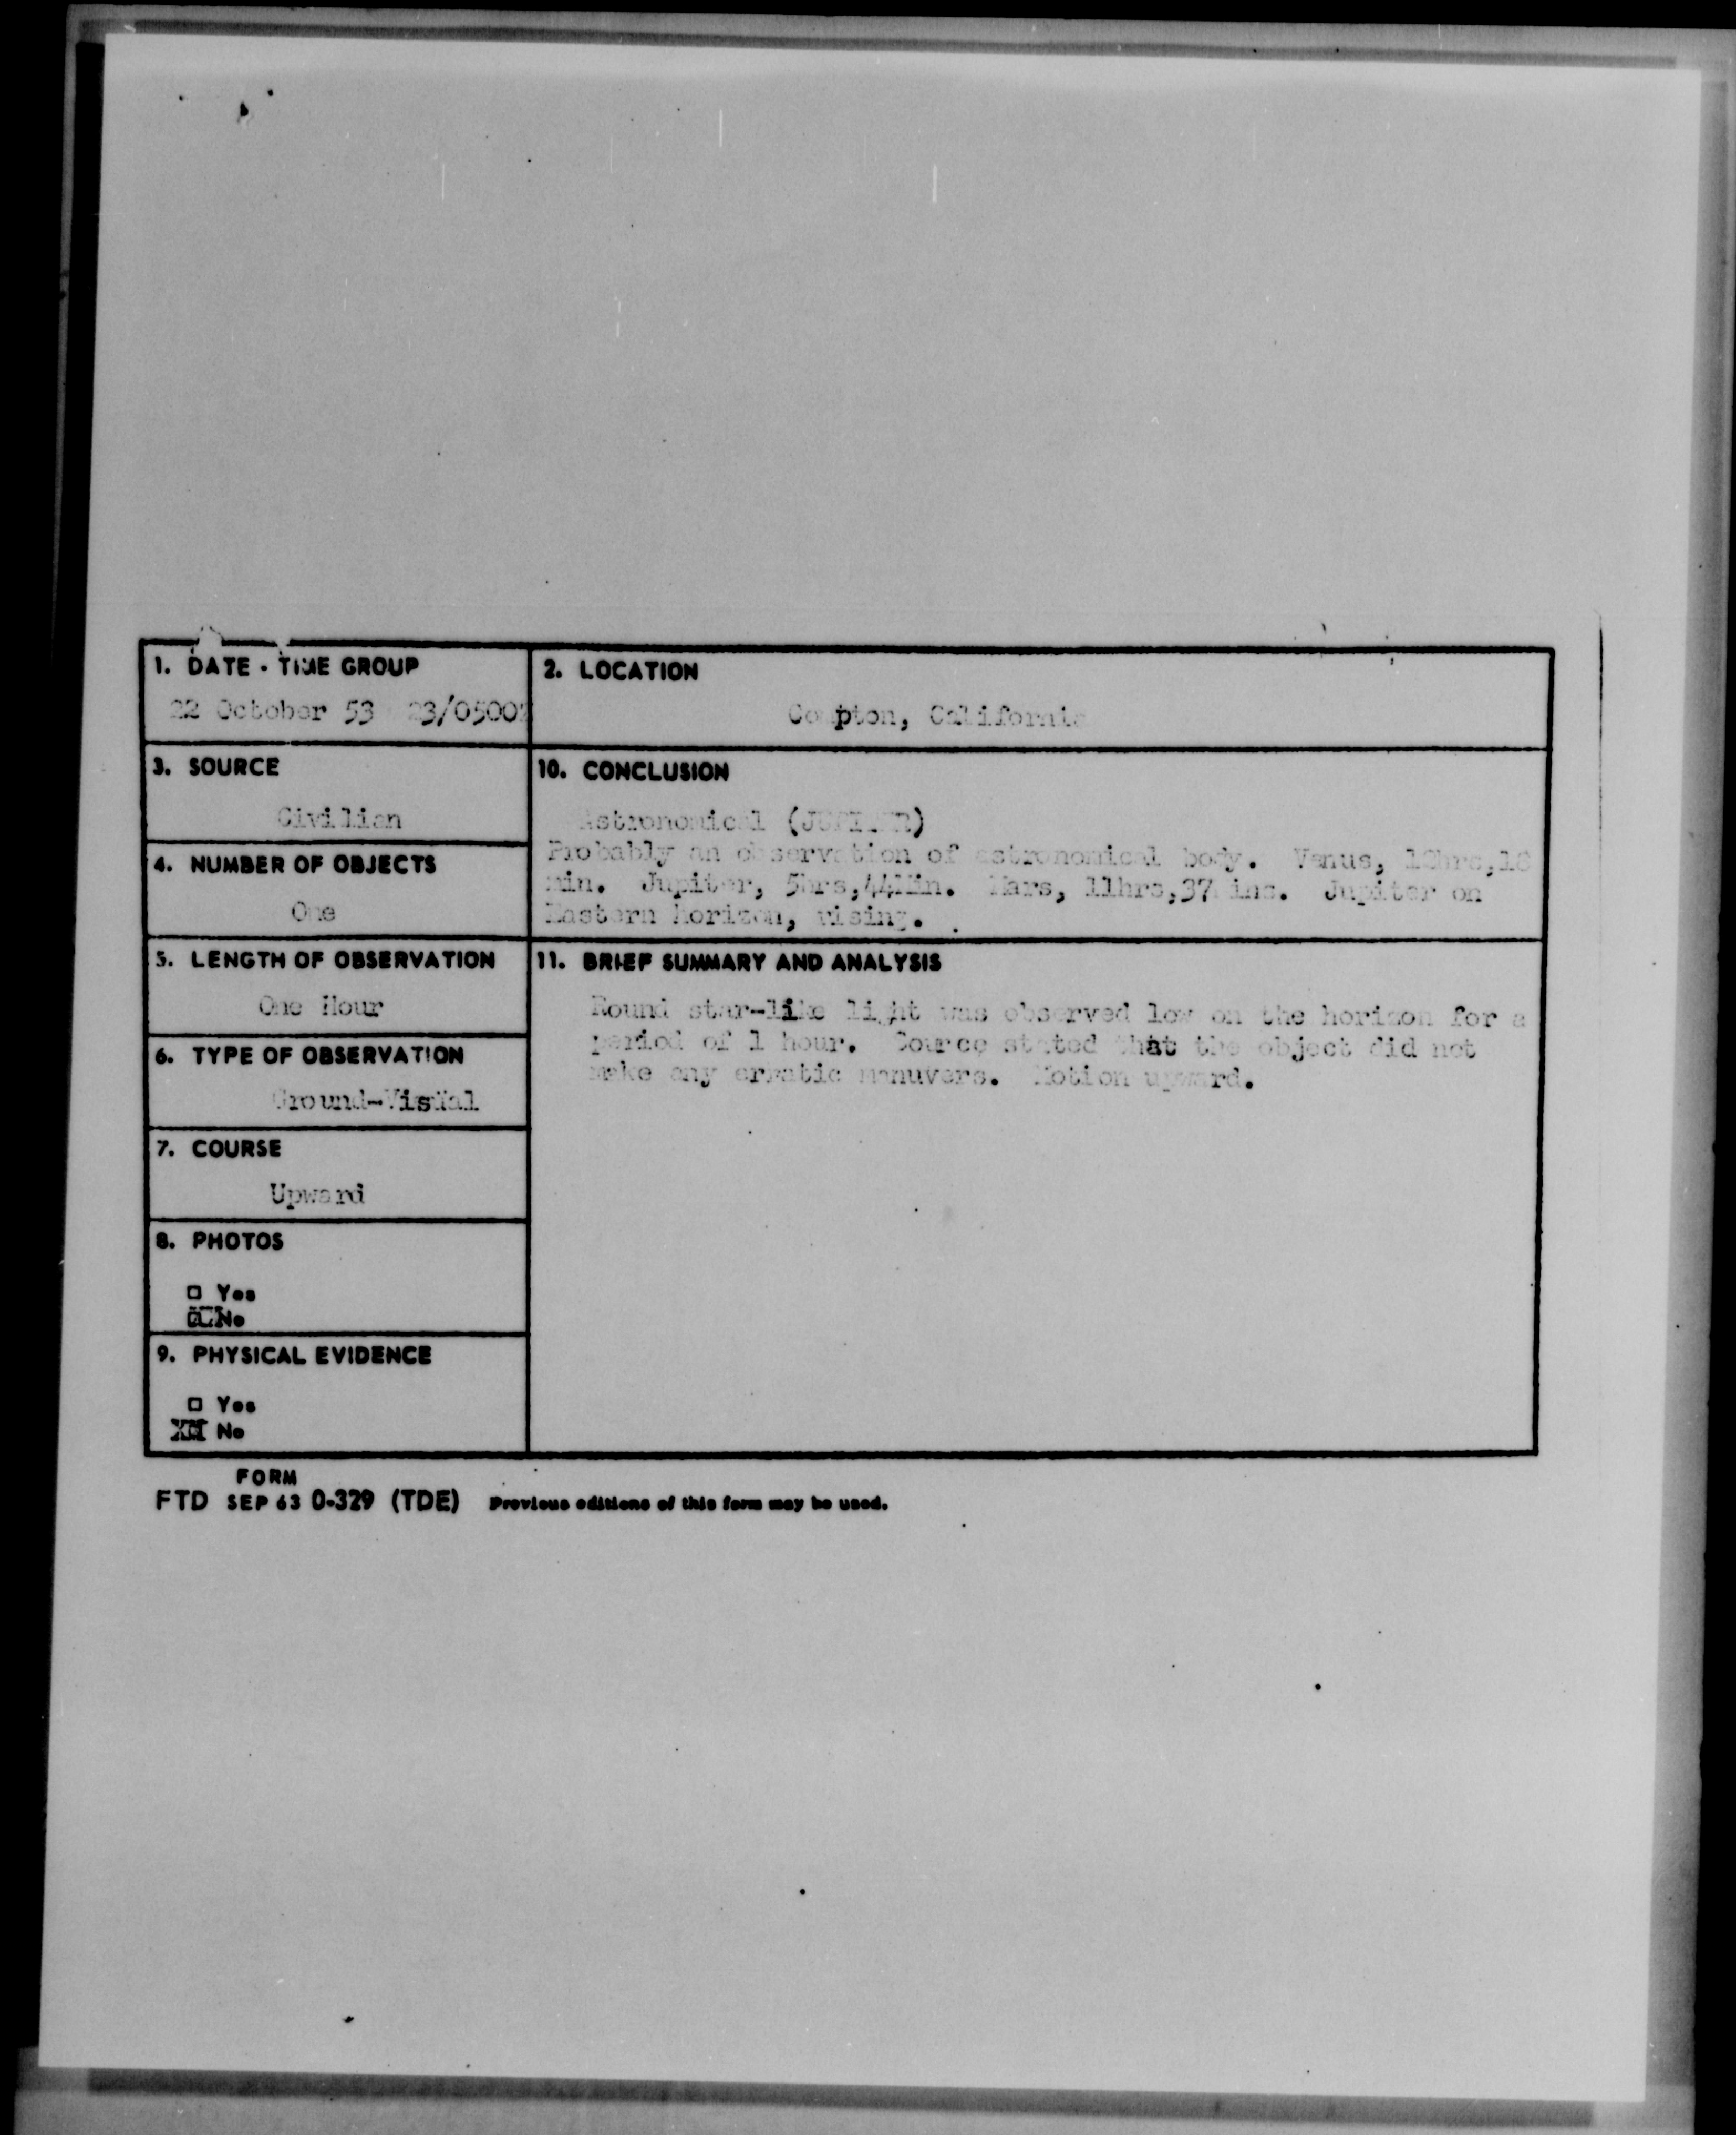 1. DATE - TIME GROUP
22 October 53 23/0500Z
2. LOCATION
Compton, California
3. SOURCE
Civilian
10. CONCLUSION
Astronomical (JUPITER)
Probably an observation of astronomical body. Venus,
min. Jupiter, 5hrs,44Min. Mars, 11hrs,37 ins. Jupiter on
Eastern horizon, rising.
4. NUMBER OF OBJECTS
One
5. LENGTH OF OBSERVATION
One Hour
11. BRIEF SUMMARY AND ANALYSIS
Round star-like light was observed low on the horizon for a
period of 1 hour. Source stated that the object did not
make any erratic manuvers. Motion upward.
6. TYPE OF OBSERVATION
Ground-Visual
7. COURSE
Upward
8. PHOTOS
□ Yes
No
9. PHYSICAL EVIDENCE
□ Yes
XX No
FORM
FTD SEP 63 0-329 (TDE) Previous editions of this form may be used.